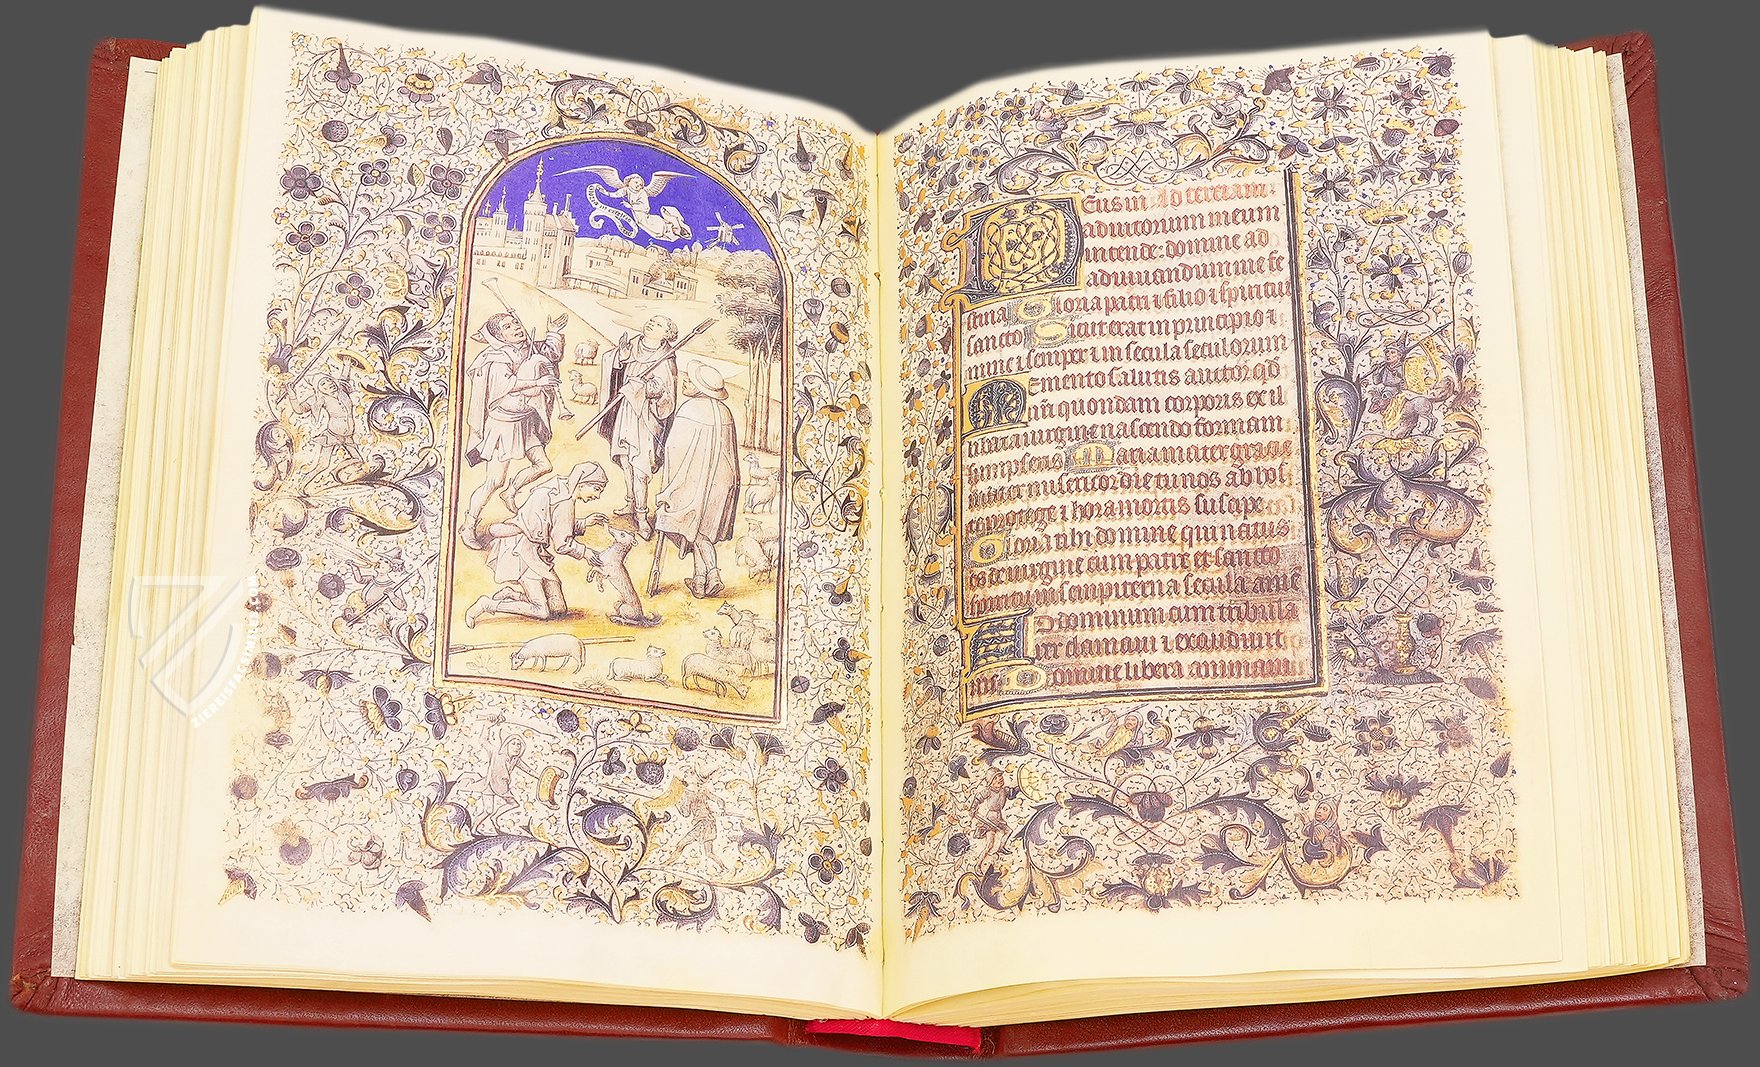 Deus in Ad terciam:
adiutorium meum
intende: domine ad
adiuuandum me fe
stina Gloria patri ⁊ filio ⁊ spiritui
sancto Sicut erat in principio ⁊
nunc ⁊ semper ⁊ in secula seculorum
Memento salutis auctor qd̄
nr̄i quondam corporis ex il
libata uirgine nascendo formam
sumpseris Maria mater gracie
mater misericordie tu nos ab hos
te protege ⁊ hora mortis suscipe
Gloria tibi domine qui natus
es de uirgine cum patre et sancto
spiritu in sempiterna secula ame
Ad dominum cum tribula
rer clamaui ⁊ exaudiuit
me Domine libera animam
ZIEREIS FACSIMILES